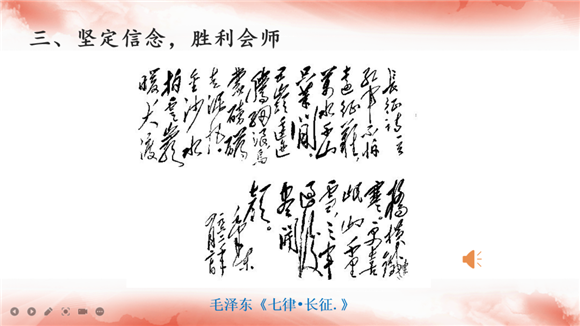 三、坚定信念，胜利会师
长征诗一首
红军不怕
远征难，
万水千山
只等闲。
五岭逶迤
腾细浪，乌
蒙磅礴
走泥丸。
金沙水
拍云崖
暖，大渡
桥横铁索
寒。更喜
岷山千里
雪，三军
过后
尽开
颜。
毛泽东
毛泽东《七律•长征.》